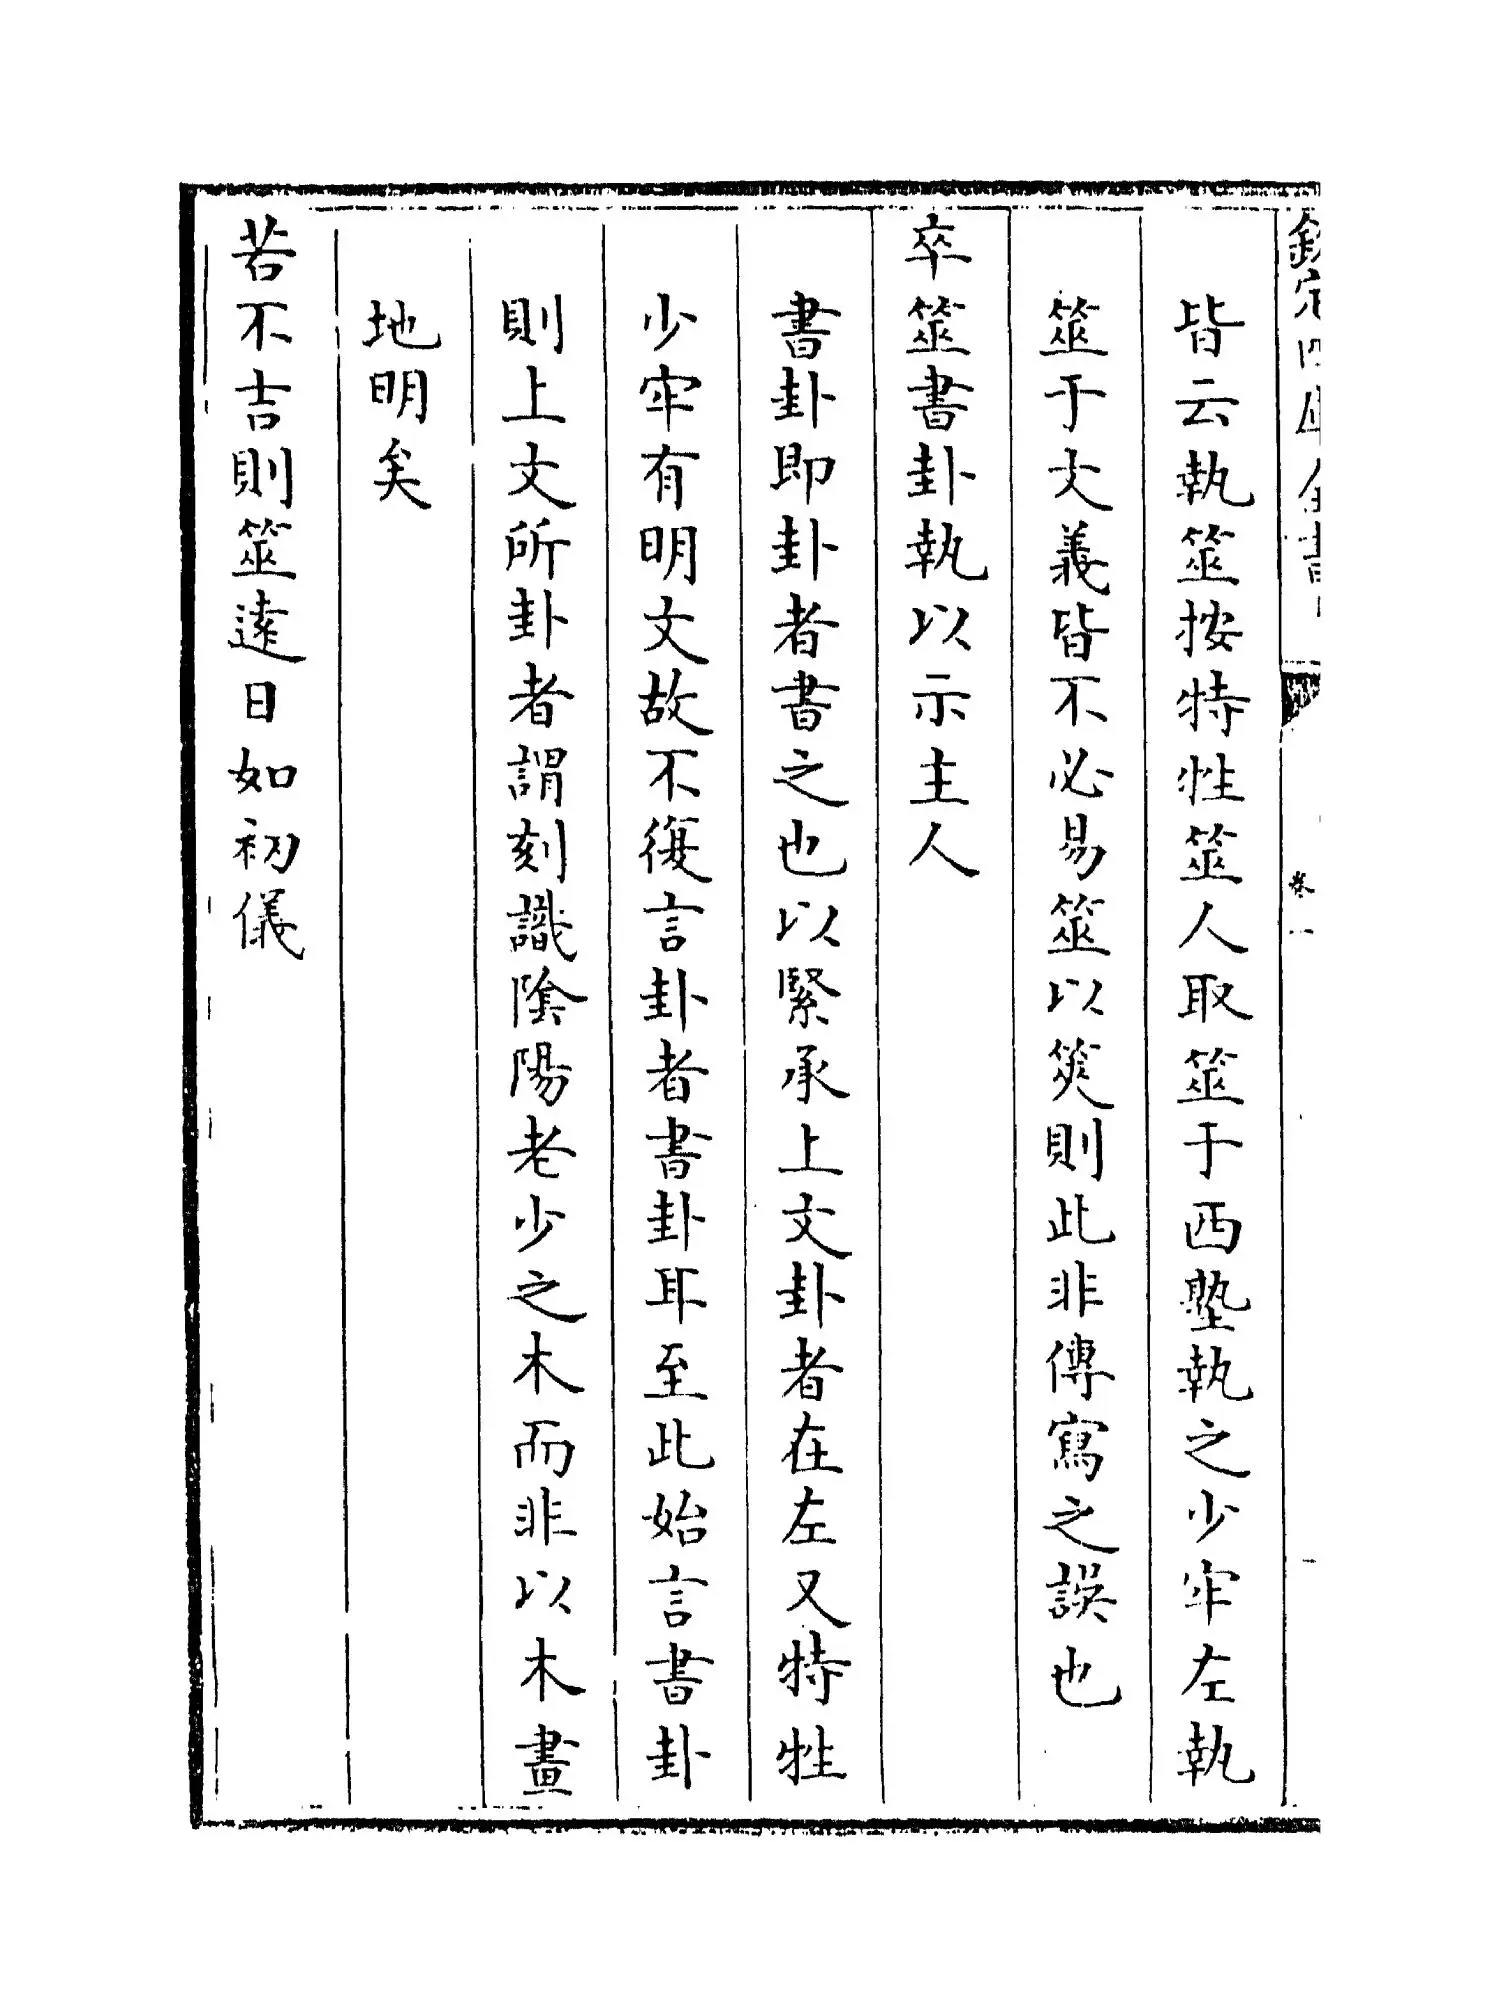 欽定四庫全書
卷一
皆云執筮按特牲筮人取筮于西塾執之少牢左執
筮于文義皆不必易筮以筴則此非傳寫之誤也
卒筮書卦執以示主人
書卦即卦者書之也以緊承上文卦者在左又特牲
少牢有明文故不復言卦者書卦耳至此始言書卦
則上文所卦者謂刻識陰陽老少之木而非以木畫
地明矣
若不吉則筮遠日如初儀